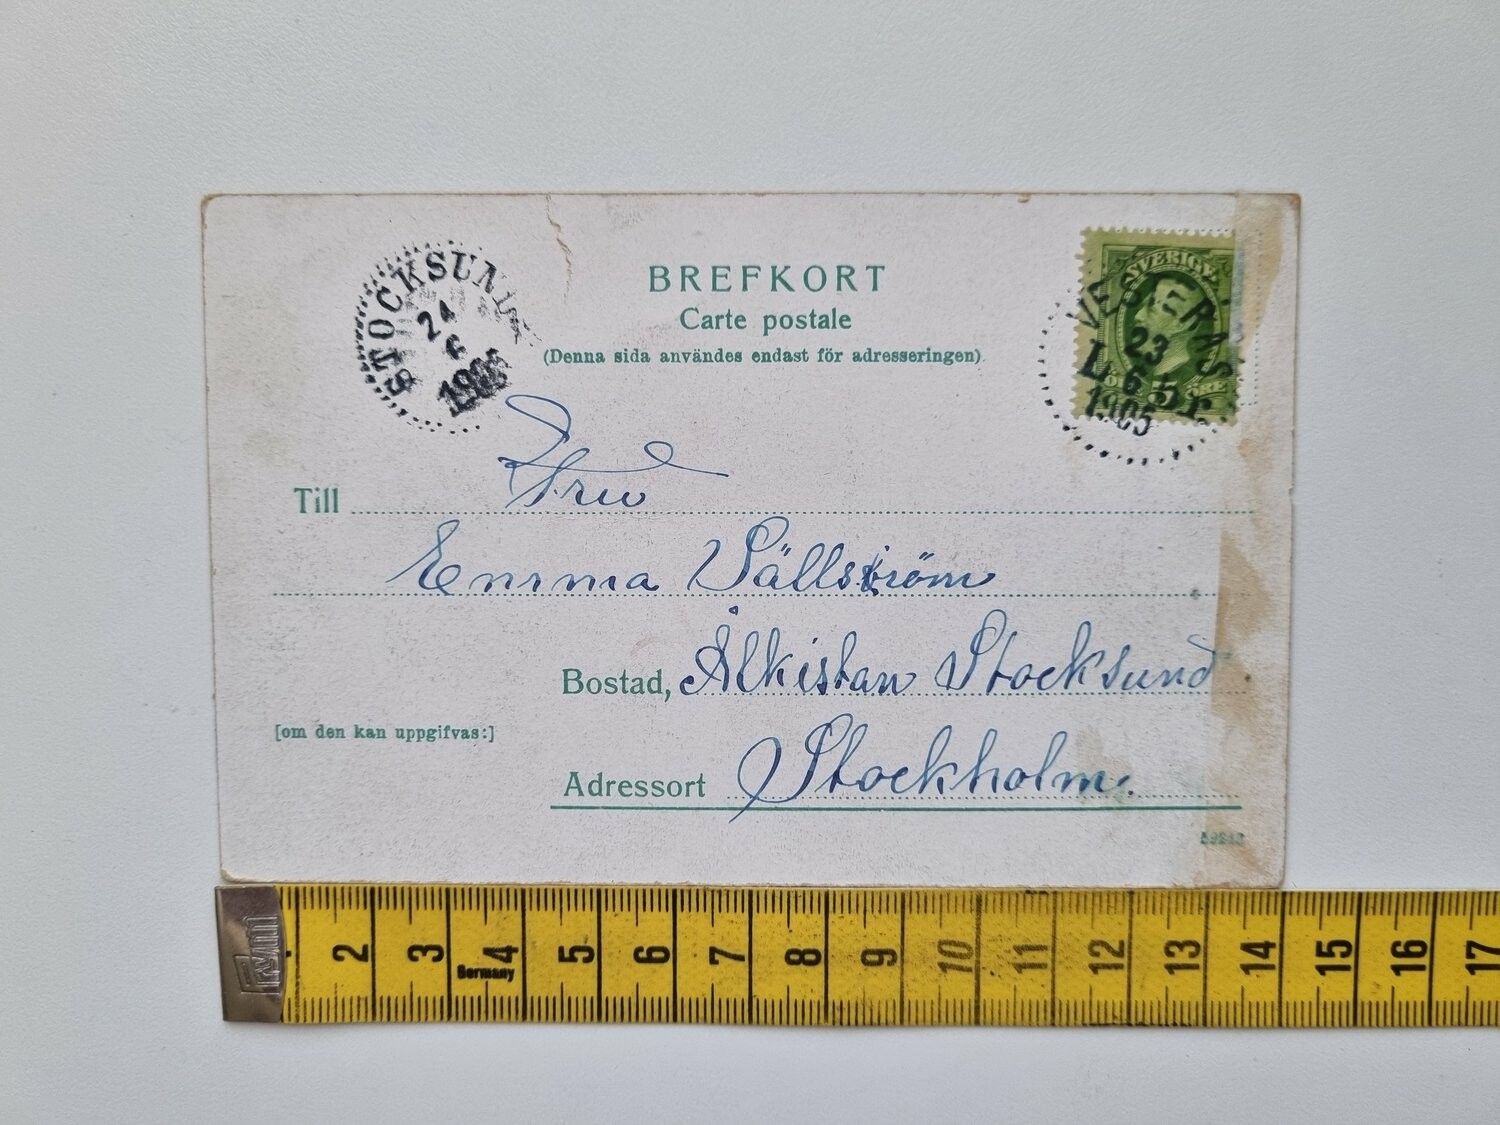 STOCKSUND
24
6
1905
BREFKORT
Carte postale
(Denna sida användes endast för adresseringen).
SVERIGE
5 ÖRE
VESTERÅS
23
6
1905
Till Fru
Emma Sällström
Bostad, Ålkistan Stocksund
[om den kan uppgifvas:]
Adressort Stockholm.
Prym
2 3 4 5 6 7 8 9 10 11 12 13 14 15 16 17
Germany